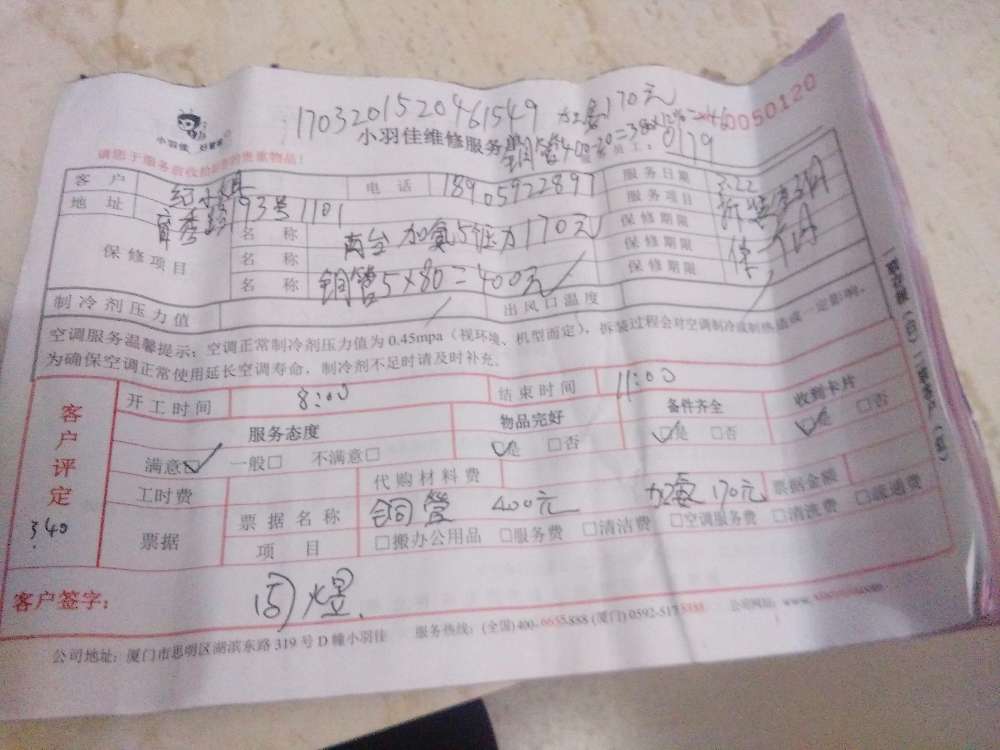 170320151520461549 加氨170元 0050120
小羽佳 好管家
小羽佳维修服务单
铜管400-20=380×12%=
服务员工：0179
请您于服务前收拾好您的贵重物品！
客户 电话 18905922897 服务日期 3.22
地址 育秀路73号1101 服务项目
保修项目 名称 两台加氨5压力170元 保修期限
名称 保修期限
名称 铜管5×80=400元 保修期限
制冷剂压力值 出风口温度
空调服务温馨提示：空调正常制冷剂压力值为0.45mpa（视环境、机型而定），拆装过程会对空调制冷或制热造成一定影响。
为确保空调正常使用延长空调寿命，制冷剂不足时请及时补充。
客户评定 开工时间 8:00 结束时间 11:00
服务态度 物品完好 备件齐全 收到卡片
满意☑ 一般□ 不满意□ ☑是 □否 ☑是 □否 ☑是 □否
工时费 代购材料费
票据 票据名称 铜管 400元 加氨 170元 票据金额
340
项目 □搬办公用品 □服务费 □清洁费 □空调服务费 □清洗费 □疏通费
客户签字：
公司地址：厦门市思明区湖滨东路319号D幢小羽佳 服务热线：(全国)400-6655888 (厦门)0592-5175888 公司网址：www.